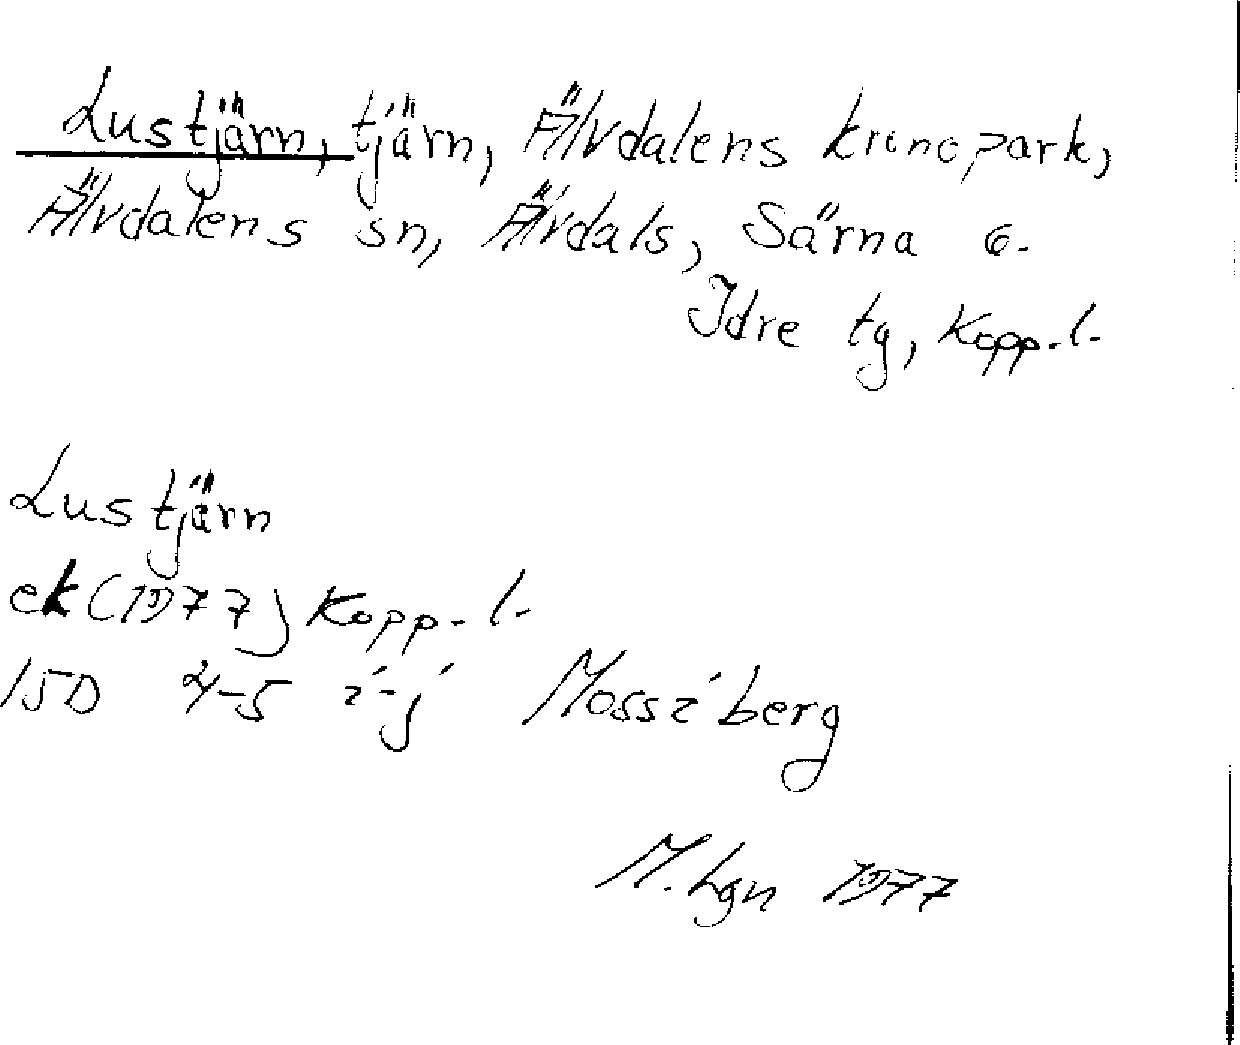 Lustjärn, tjärn, Älvdalens kronopark,
Älvdalens sn, Älvdals, Särna o.
Idre tg, Kopp. l.
Lustjärn
ek (1977) Kopp. l.
15D 4-5 i-j Mossiberg
M. Lgn 1977